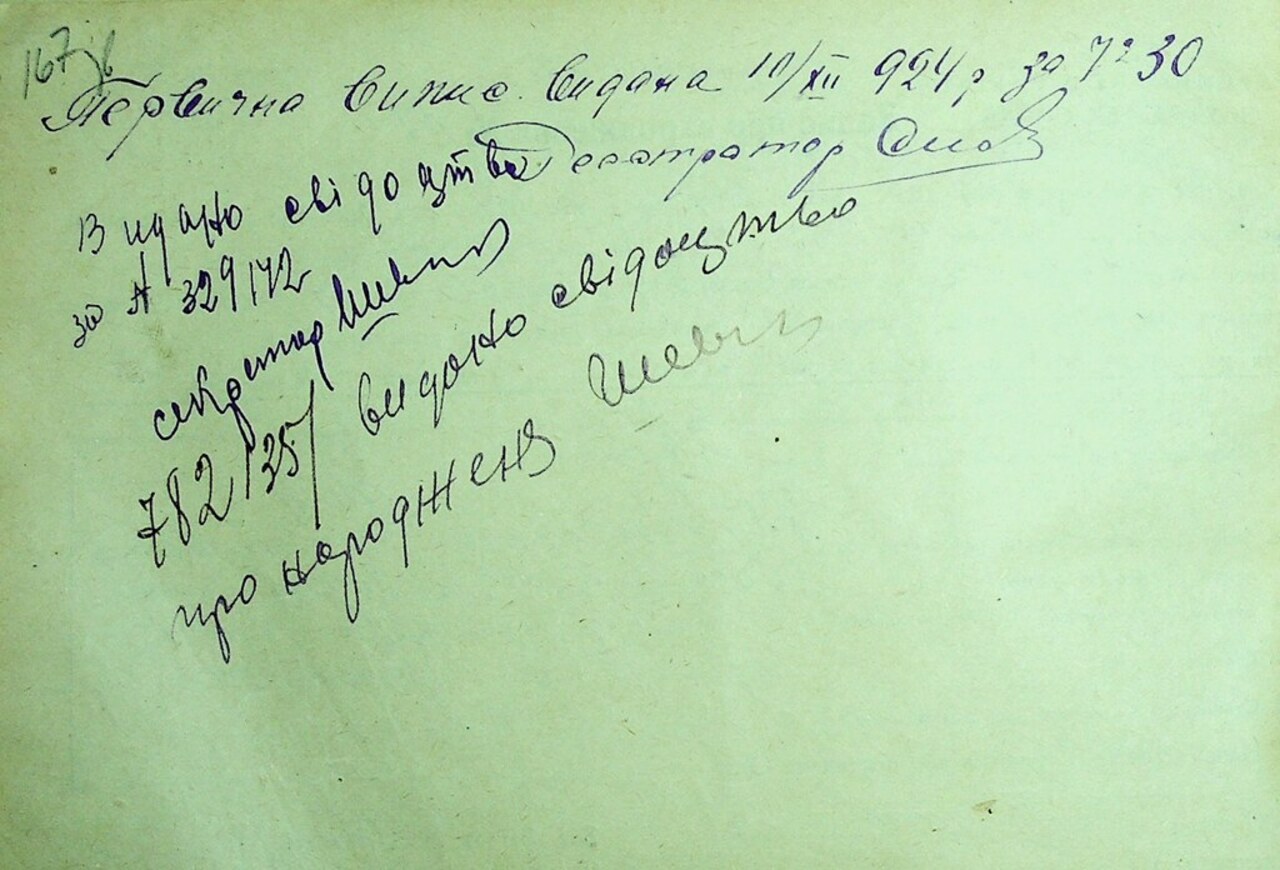 167зв
Первична випис. видана 10/XII 924 р за № 30
Реєстратор
Видано свідоцтво
за № 329172
секретар
782135/ видано свідоцтво
про народжен